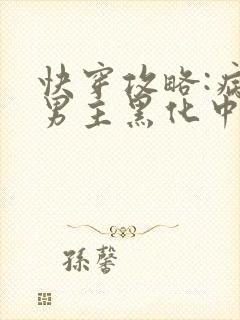 快穿攻略:病
男主黑化中
孫馨